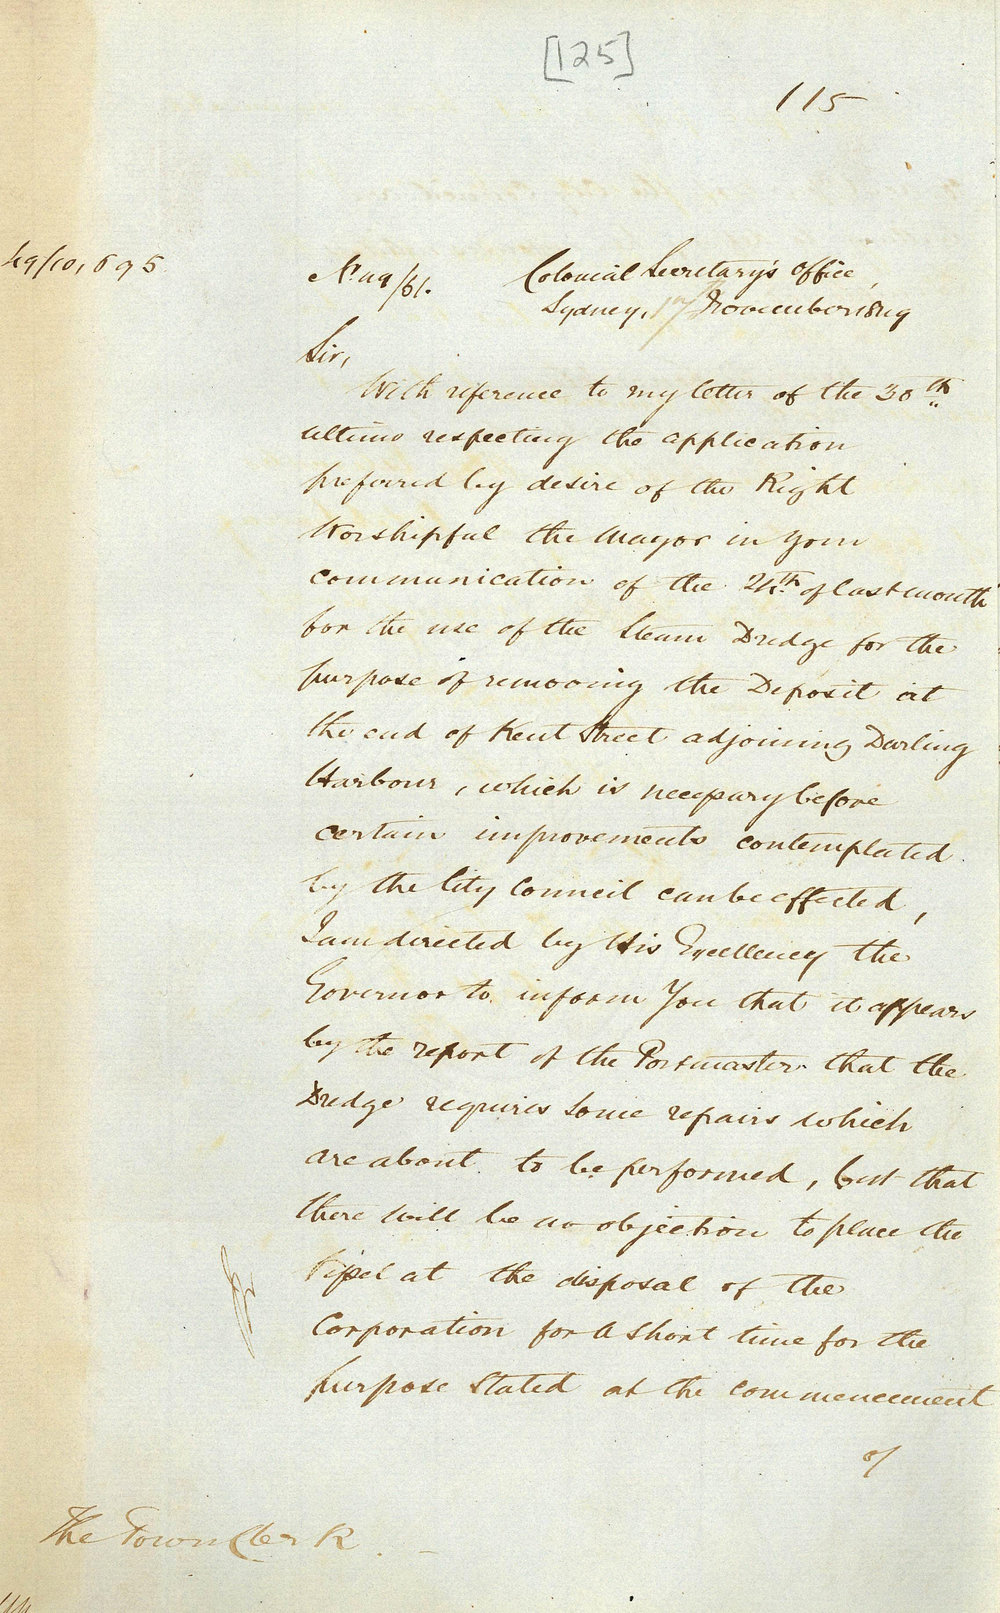 [125]
115
49/10,695
No. 49/61. Colonial Secretary's Office,
Sydney, 17 November 1849
Sir,
With reference to my letter of the 30th
ultimo respecting the application
preferred by desire of the Right
Worshipful the Mayor in your
communication of the 24th of last month
for the use of the Steam Dredge for the
purpose of removing the Deposit at
the end of Kent Street adjoining Darling
Harbour, which is necessary before
certain improvements contemplated
by the City Council can be effected,
I am directed by His Excellency the
Governor to inform You that it appears
by the report of the Portmaster that the
Dredge requires some repairs which
are about to be performed, but that
there will be no objection to place the
Vessel at the disposal of the
Corporation for a short time for the
purpose stated at the commencement
of
The Town Clerk